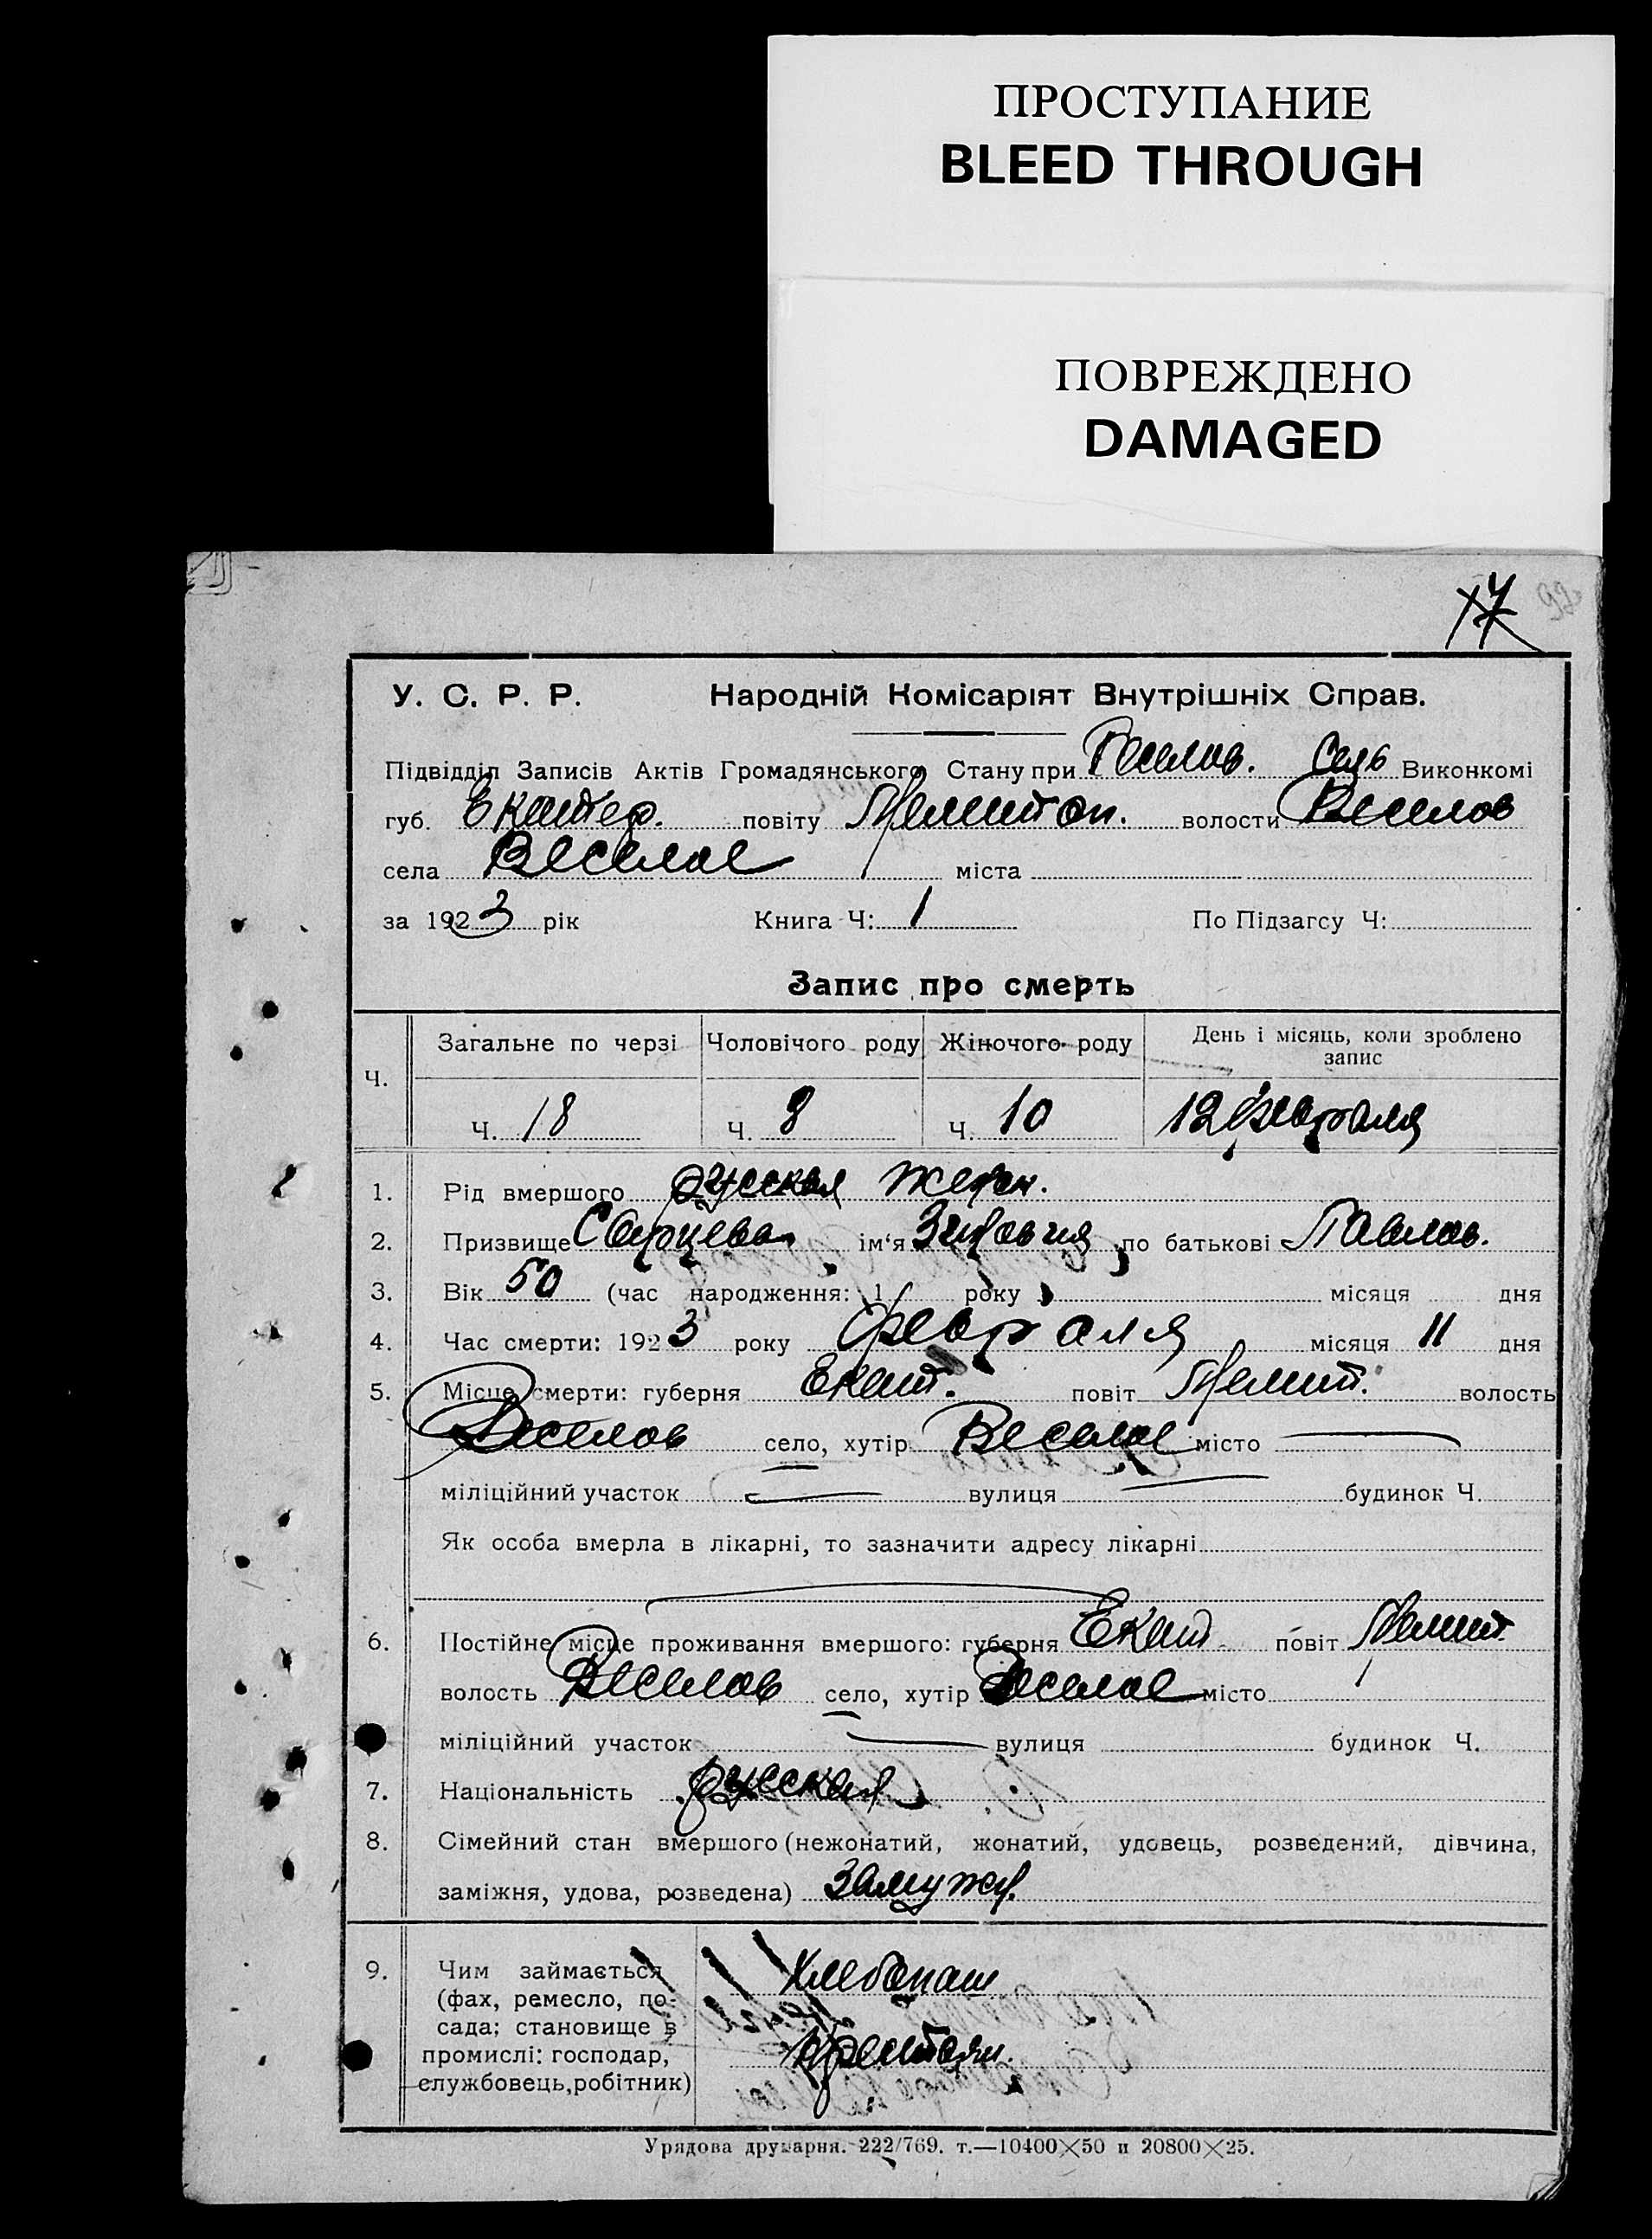 ПРОСТУПАНИЕ
BLEED THROUGH
ПОВРЕЖДЕНО
DAMAGED
17
У. С. Р. Р. Народній Комісаріят Внутрішніх Справ.
Підвідділ Записів Актів Громадянського Стану при Веселов. Сель Виконкомі
губ. Екатер. повіту Мелитоп. волости Веселов
села Веселое міста
за 1923 рік Книга Ч: 1 По Підзагсу Ч:
Запис про смерть
Ч. Загальне по черзі Чоловічого роду Жіночого роду День і місяць, коли зроблено запис
Ч. 18 Ч. 8 Ч. 10 12 февраля
1. Рід вмершого русская женск.
2. Призвище ім‘я Зиновия по батькові Павлов.
3. Вік 50 (час народження: 1 року місяця дня
4. Час смерти: 1923 року февраля місяця 11 дня
5. Місце смерти: губерня Екат. повіт Мелит. волость
Веселов село, хутір Веселое місто
міліційний участок вулиця будинок Ч.
Як особа вмерла в лікарні, то зазначити адресу лікарні
6. Постійне місце проживання вмершого: губерня Екат. повіт Мелит.
волость Веселов село, хутір Веселое місто
міліційний участок вулиця будинок Ч.
7. Національність русская
8. Сімейний стан вмершого (нежонатий, жонатий, удовець, розведений, дівчина,
заміжня, удова, розведена) замужн.
9. Чим займається Хлебопаш
(фах, ремесло, по-
сада; становище в
промислі: господар, крестьян.
службовець, робітник)
Урядова друкарня. 222/769. т.—10400×50 и 20800×25.